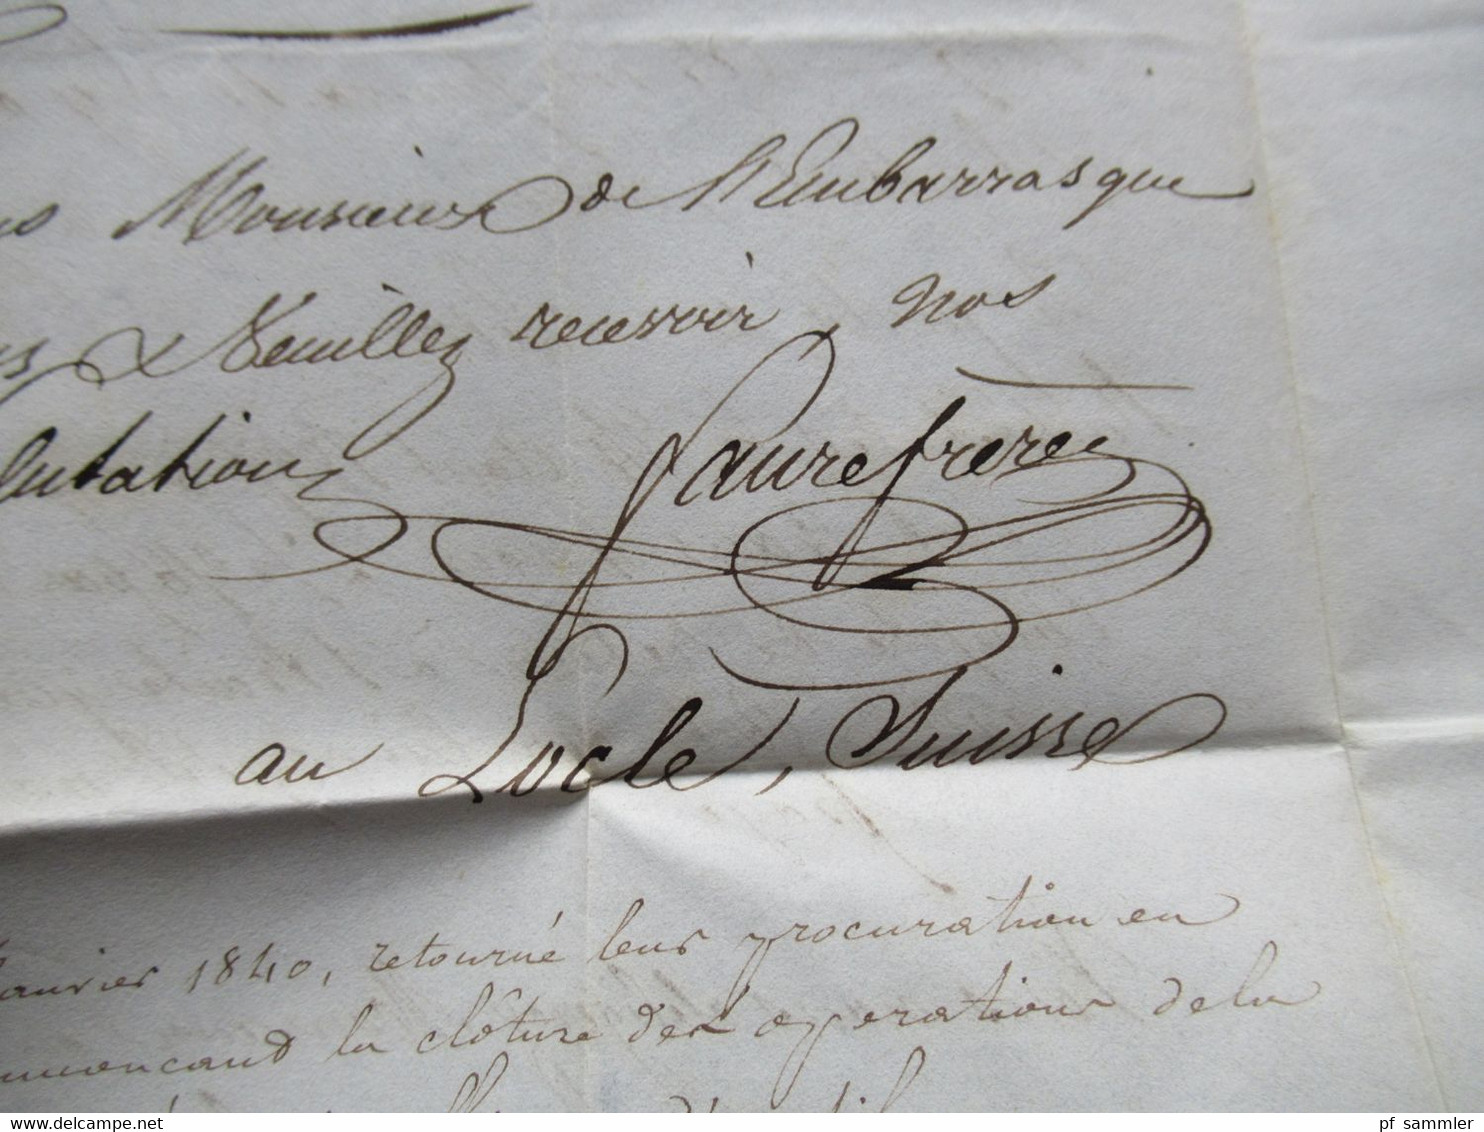 Monsieur de l'Embarras que
Veuillez recevoir, nos
lutations
Faure frères
au Locle, Suisse
Janvier 1840, retourné leur procuration en
nnonçant la clôture des opérations de la
delcampe.net
pf_sammler